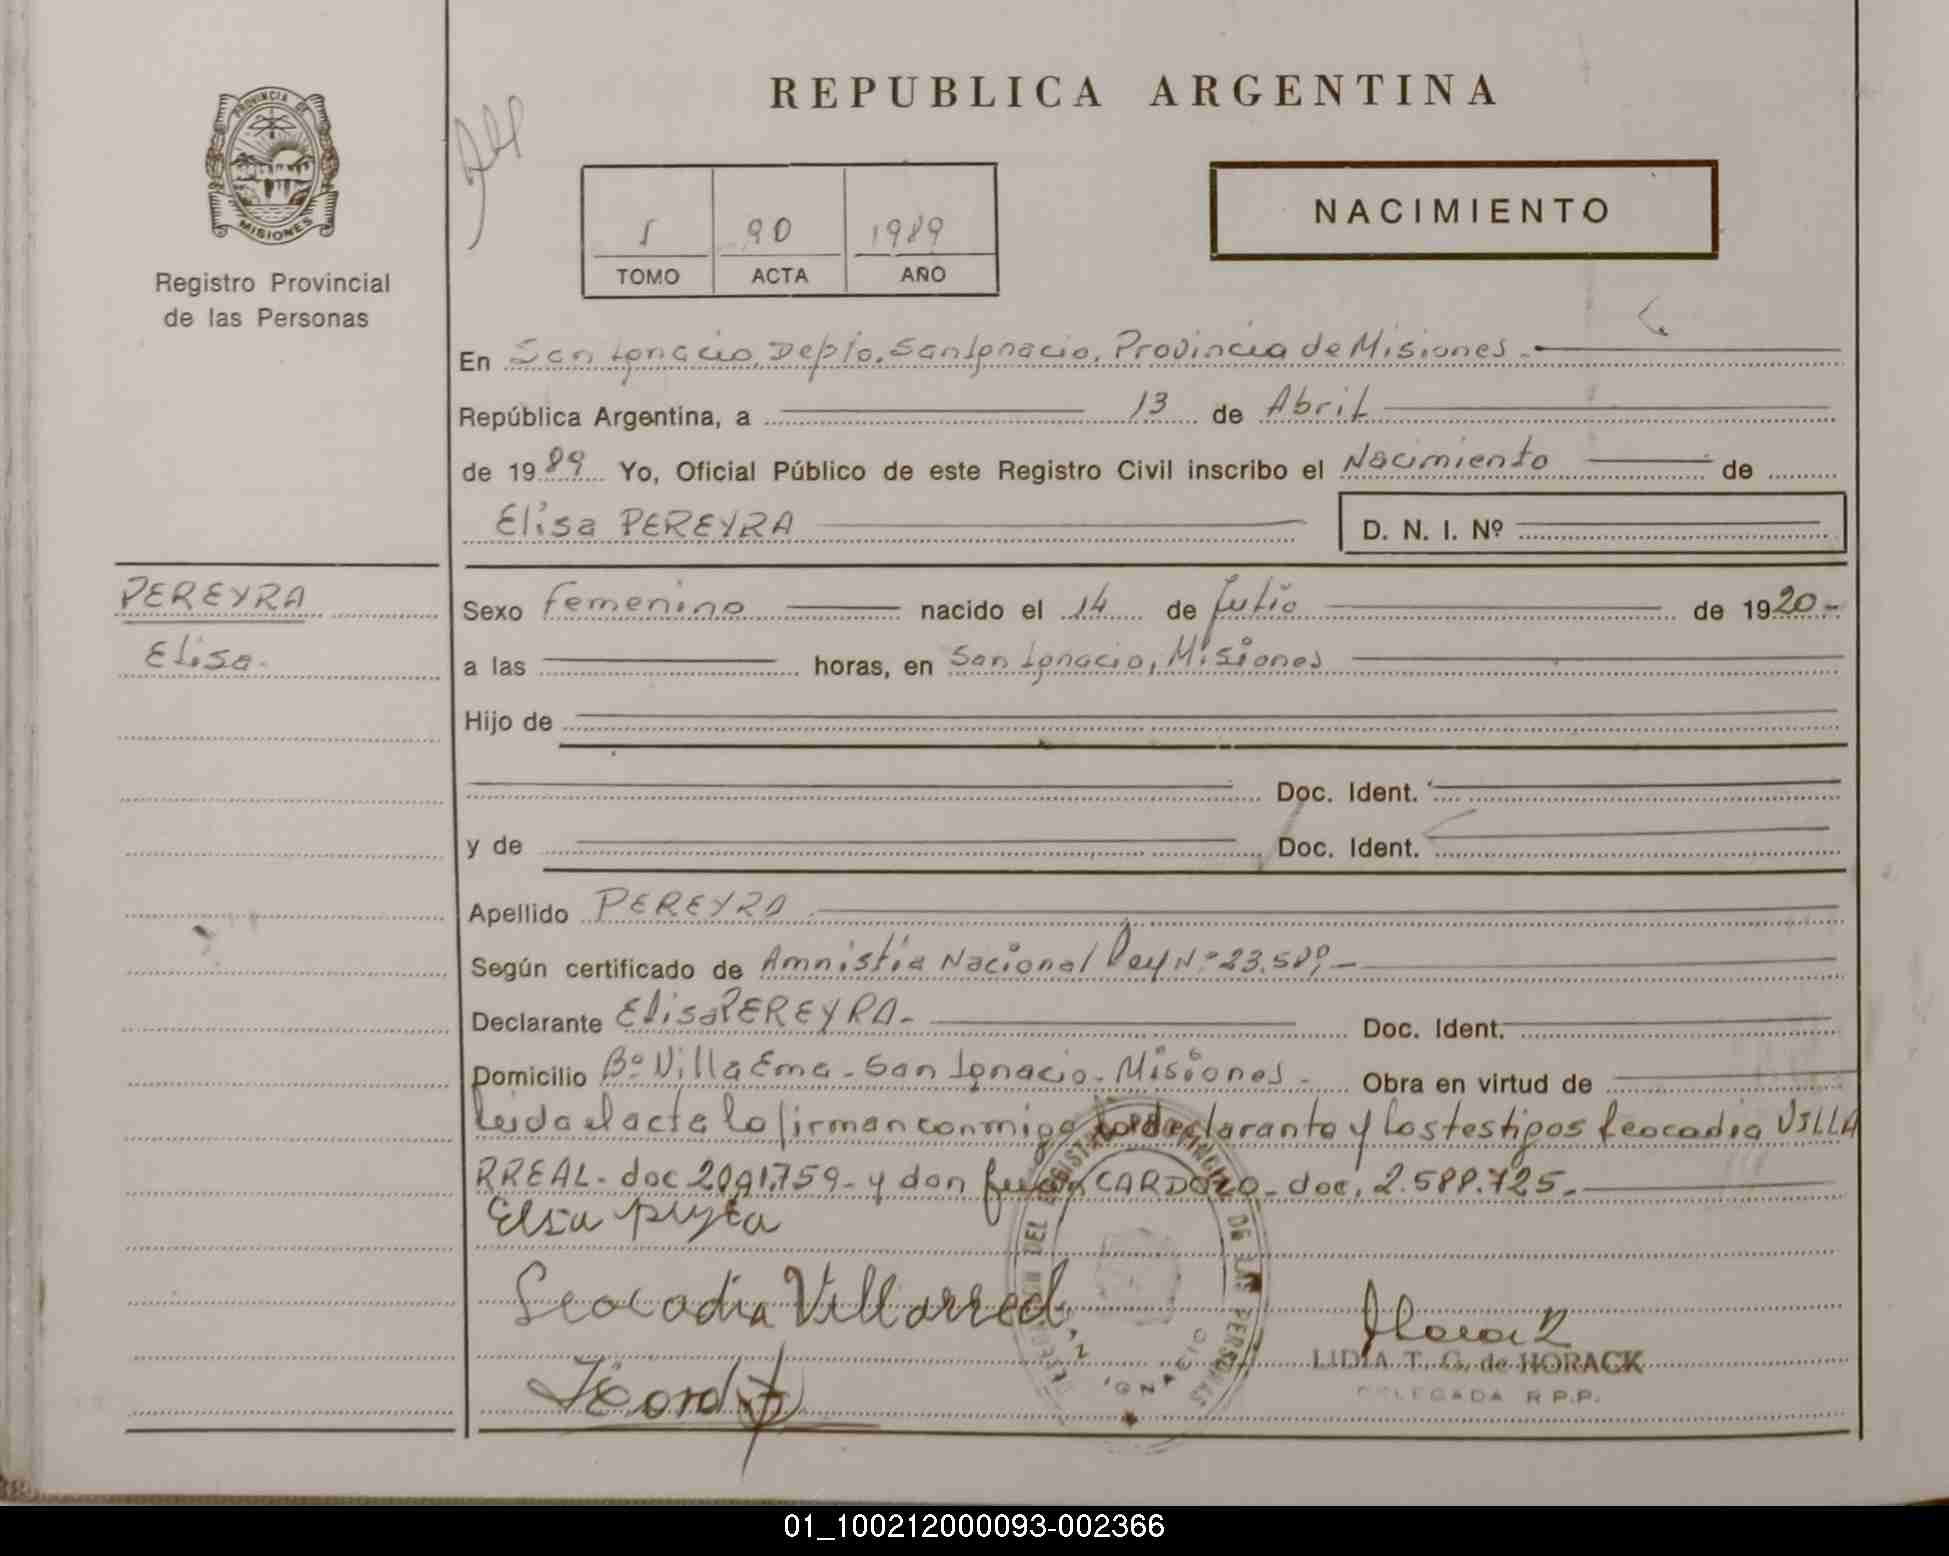 PROVINCIA DE
MISIONES
Registro Provincial
de las Personas
REPUBLICA ARGENTINA
NACIMIENTO
5 90 1989
TOMO ACTA AÑO
En San Ignacio, Depto. San Ignacio, Provincia de Misiones.-
República Argentina, a 13 de Abril
de 1989 Yo, Oficial Público de este Registro Civil inscribo el Nacimiento de
Elisa PEREYRA D. N. I. Nº
PEREYRA
Elisa.
Sexo Femenino nacido el 14 de Julio de 1920.-
a las horas, en San Ignacio, Misiones
Hijo de
Doc. Ident.
y de Doc. Ident.
Apellido PEREYRA
Según certificado de Amnistía Nacional Ley Nº 23.589.-
Declarante Elisa PEREYRA.- Doc. Ident.
Domicilio Bº Villa Ema - San Ignacio - Misiones.- Obra en virtud de
leida el acta lo firman conmigo la declarante y los testigos Leocadia VILLA
RREAL - doc 2.091.759 - y don Juan CARDOZO - doc. 2.588.725.-
Leocadia Villarreal
LIDIA T. G. de HORACK
DELEGADA R.P.P.
DEL REGISTRO PROVINCIAL DE LAS PERSONAS
SAN IGNACIO
01_100212000093-002366